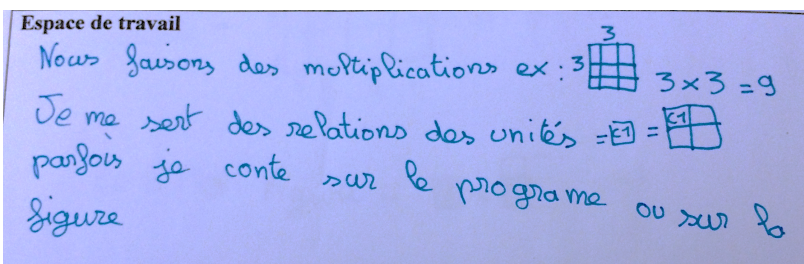 Espace de travail
Nous faisons des moltiplications ex : 3 3 3 × 3 = 9
Je me sert des relations des unités = k1 = k1
parfois je conte sur le programe ou sur la
figure